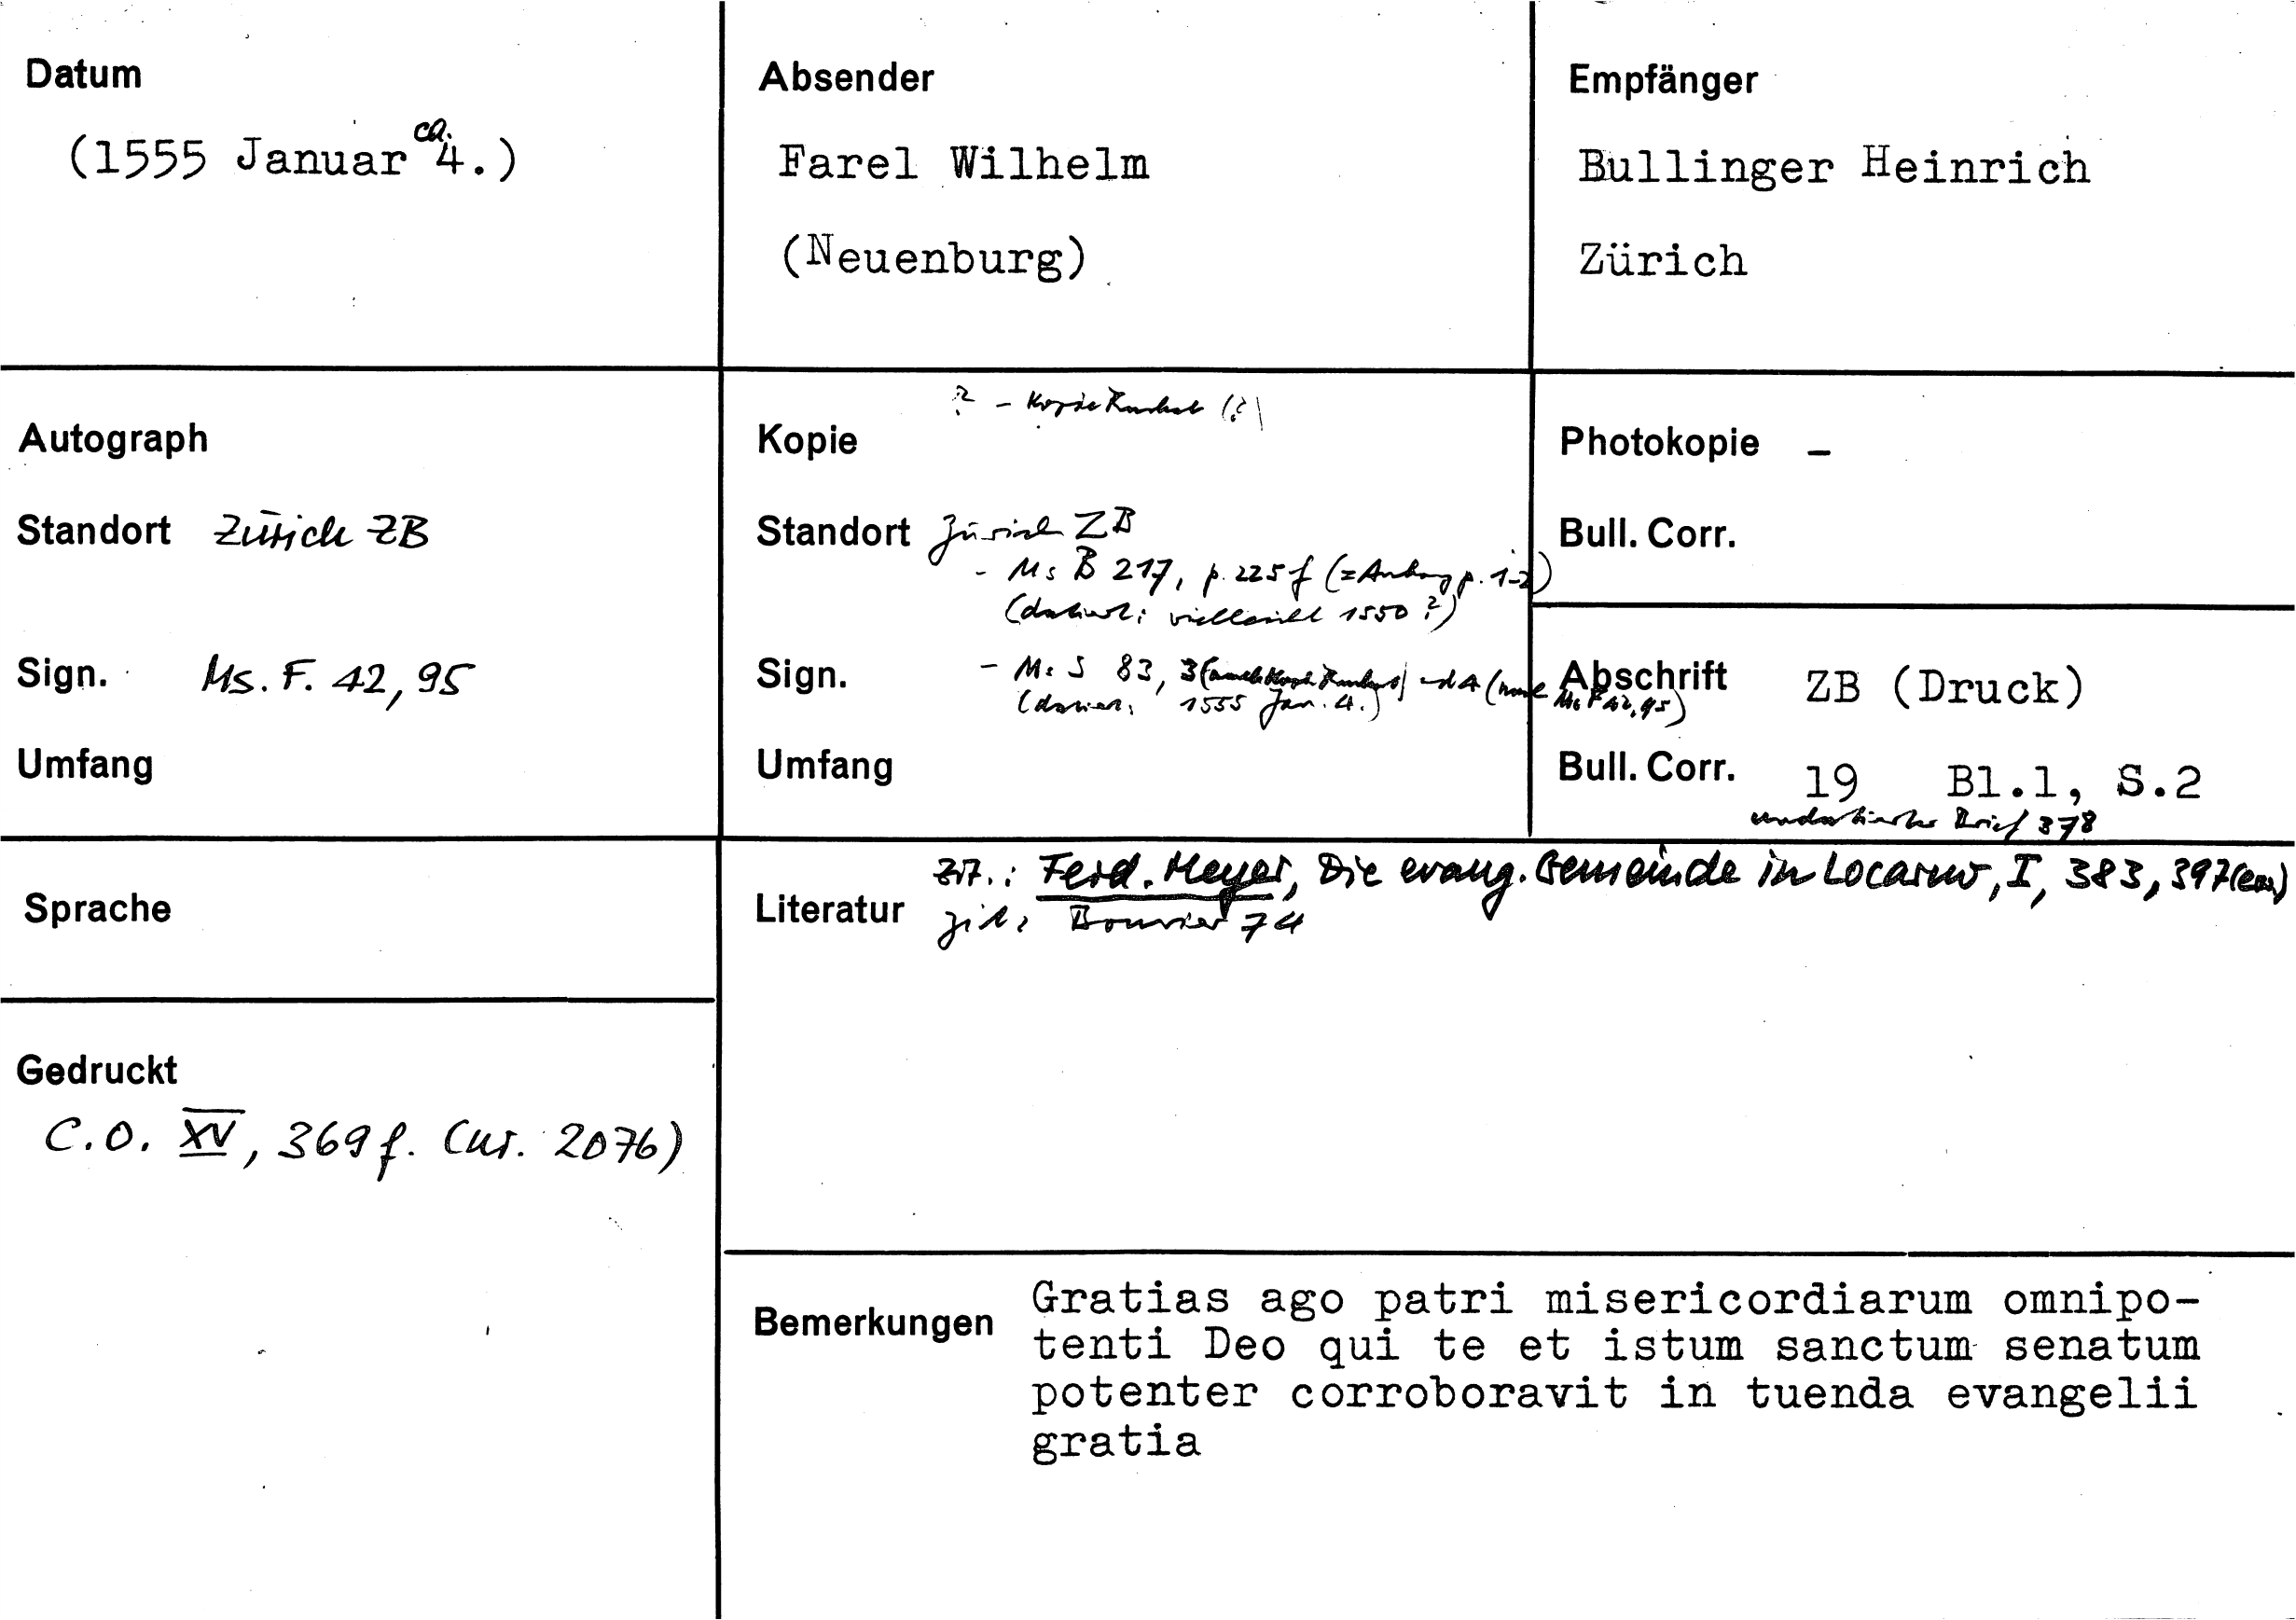 Datum
(1555 Januar ca. 4.)
Absender
Farel Wilhelm
(Neuenburg)
Empfänger
Bullinger Heinrich
Zürich
Autograph
Standort Zürich ZB
Sign. Ms. F. 42, 95
Umfang
? - Kopie (?)
Kopie
Standort Zürich ZB
- Ms B 217, p. 225 f (= Anhang p. 1-2)
(datiert: vielleicht 1550 ?)
Sign. - Ms S 83, 3 und 4 (nach Ms F 42, 95)
(datiert: 1555 Jan. 4.)
Umfang
Photokopie –
Bull. Corr.
Abschrift ZB (Druck)
Bull. Corr. 19 Bl.1, S.2
undatierter Brief 378
Sprache
Gedruckt
C.O. XV, 369 f. (nr. 2076)
Zit.: Ferd. Meyer, Die evang. Gemeinde in Locarno, I, 383, 397
Literatur zit: Bouvier 74
Bemerkungen
Gratias ago patri misericordiarum omnipo-
tenti Deo qui te et istum sanctum senatum
potenter corroboravit in tuenda evangelii
gratia